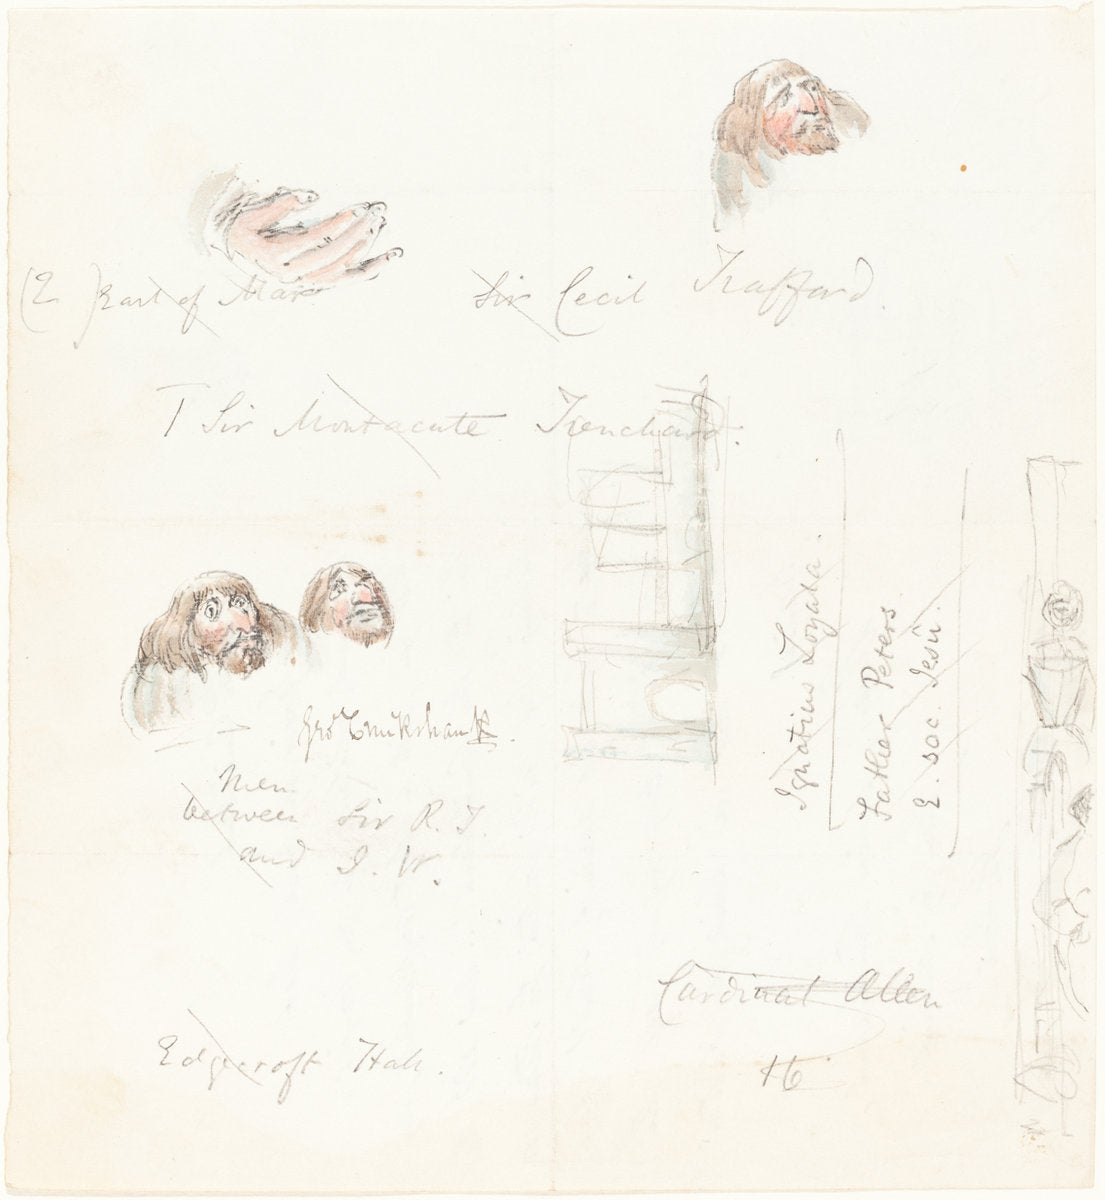 (E ) Earl of Mar
Sir Cecil Trafford.
T Sir Montacute Trenchard.
Ignatius Loyala.
Father Peters
E. soc. Jesu.
Geo Cruikshank.
Men
between Sir R. T.
and I. W.
Cardinal Allen
Edgecroft Hall.
16